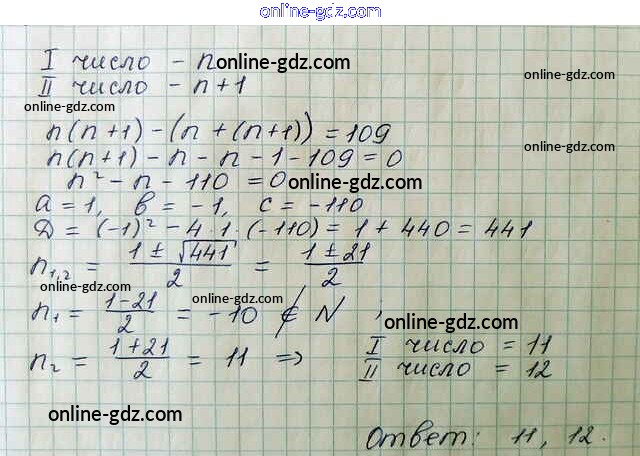 online-gdz.com
I число - n online-gdz.com
II число - n+1
online-gdz.com
online-gdz.com
n(n+1)-(n+(n+1))=109
n(n+1)-n-n-1-109=0
online-gdz.com
n²-n-110=0 online-gdz.com
a=1, в=-1, c=-110
D=(-1)²-4·1·(-110)=1+440=441
n₁,₂ = (1±√441)/2 = (1±21)/2
online-gdz.com
online-gdz.com
n₁ = (1-21)/2 = -10 ∉ N ;
online-gdz.com
n₂ = (1+21)/2 = 11 => I число = 11
II число = 12
online-gdz.com
Ответ: 11, 12.